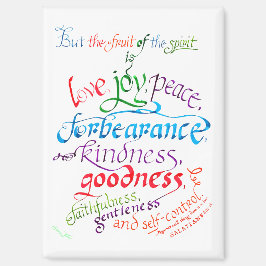 But the fruit of the spirit
is
love, joy, peace,
forbearance,
kindness,
goodness,
faithfulness,
gentleness
and self-control
GALATIANS